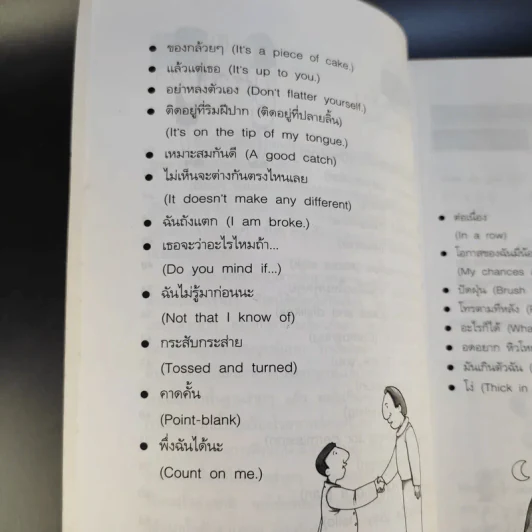 • ของกล้วยๆ (It's a piece of cake.)
• แล้วแต่เธอ (It's up to you.)
• อย่าหลงตัวเอง (Don't flatter yourself.)
• ติดอยู่ที่ริมฝีปาก (ติดอยู่ที่ปลายลิ้น)
(It's on the tip of my tongue.)
• เหมาะสมกันดี (A good catch)
• ไม่เห็นจะต่างกันตรงไหนเลย
(It doesn't make any different)
• ฉันถังแตก (I am broke.)
• เธอจะว่าอะไรไหมถ้า...
(Do you mind if...)
• ฉันไม่รู้มาก่อนนะ
(Not that I know of)
• กระสับกระส่าย
(Tossed and turned)
• คาดคั้น
(Point-blank)
• พึ่งฉันได้นะ
(Count on me.)
• ต่อเนื่อง
(In a row)
• โอกาสของฉันมีน้อ
(My chances
• ปัดฝุ่น (Brush
• โทรตามทีหลัง
• อะไรก็ได้ (Wha
• อดอยาก หิวโห
• มันเกินตัวฉัน (
• โง่ (Thick in